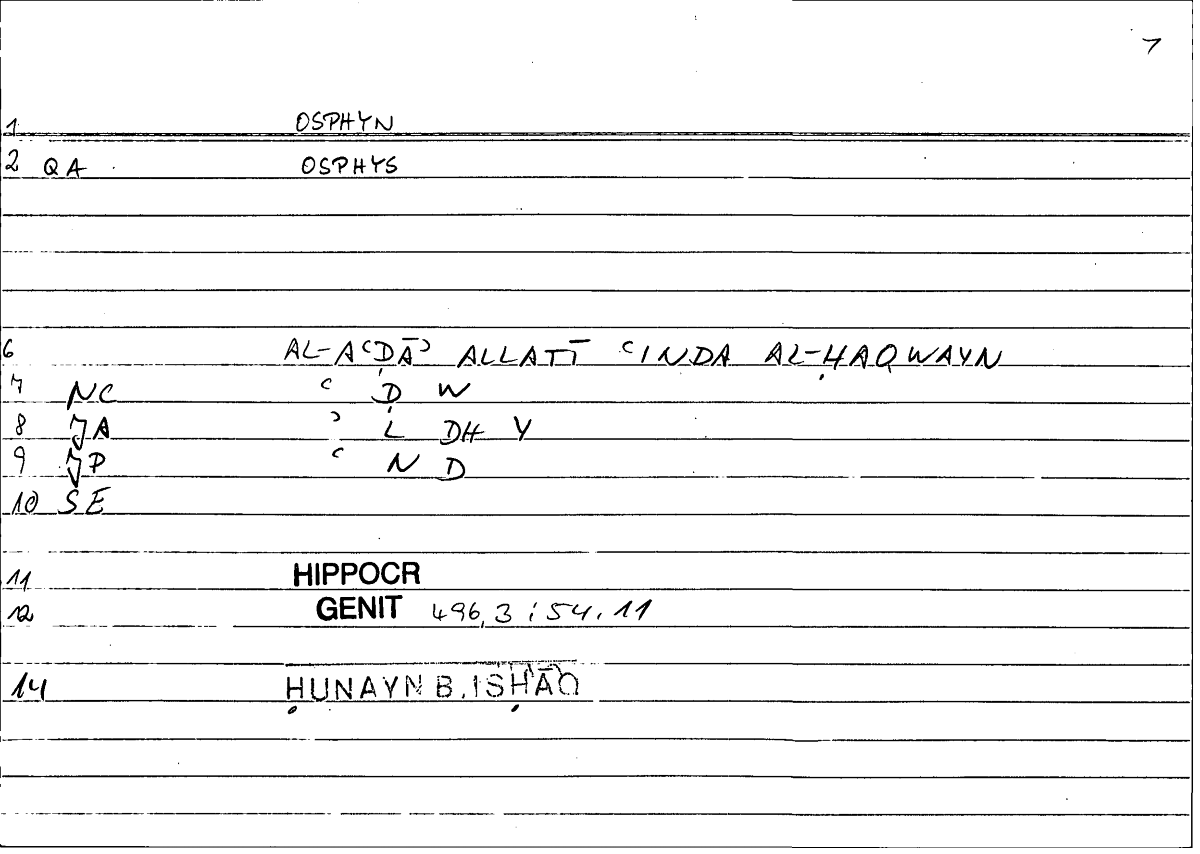 7
1 OSPHYN
2 QA OSPHYS
6 AL-AʿḌĀʾ ALLATĪ ʿINDA AL-ḤAQWAYN
7 NC ʿ Ḍ W
8 JA ʾ L DH Y
9 JP ʿ N D
10 SE
11 HIPPOCR
12 GENIT 496,3 ; 54.11
14 ḤUNAYN B. ISḤĀQ